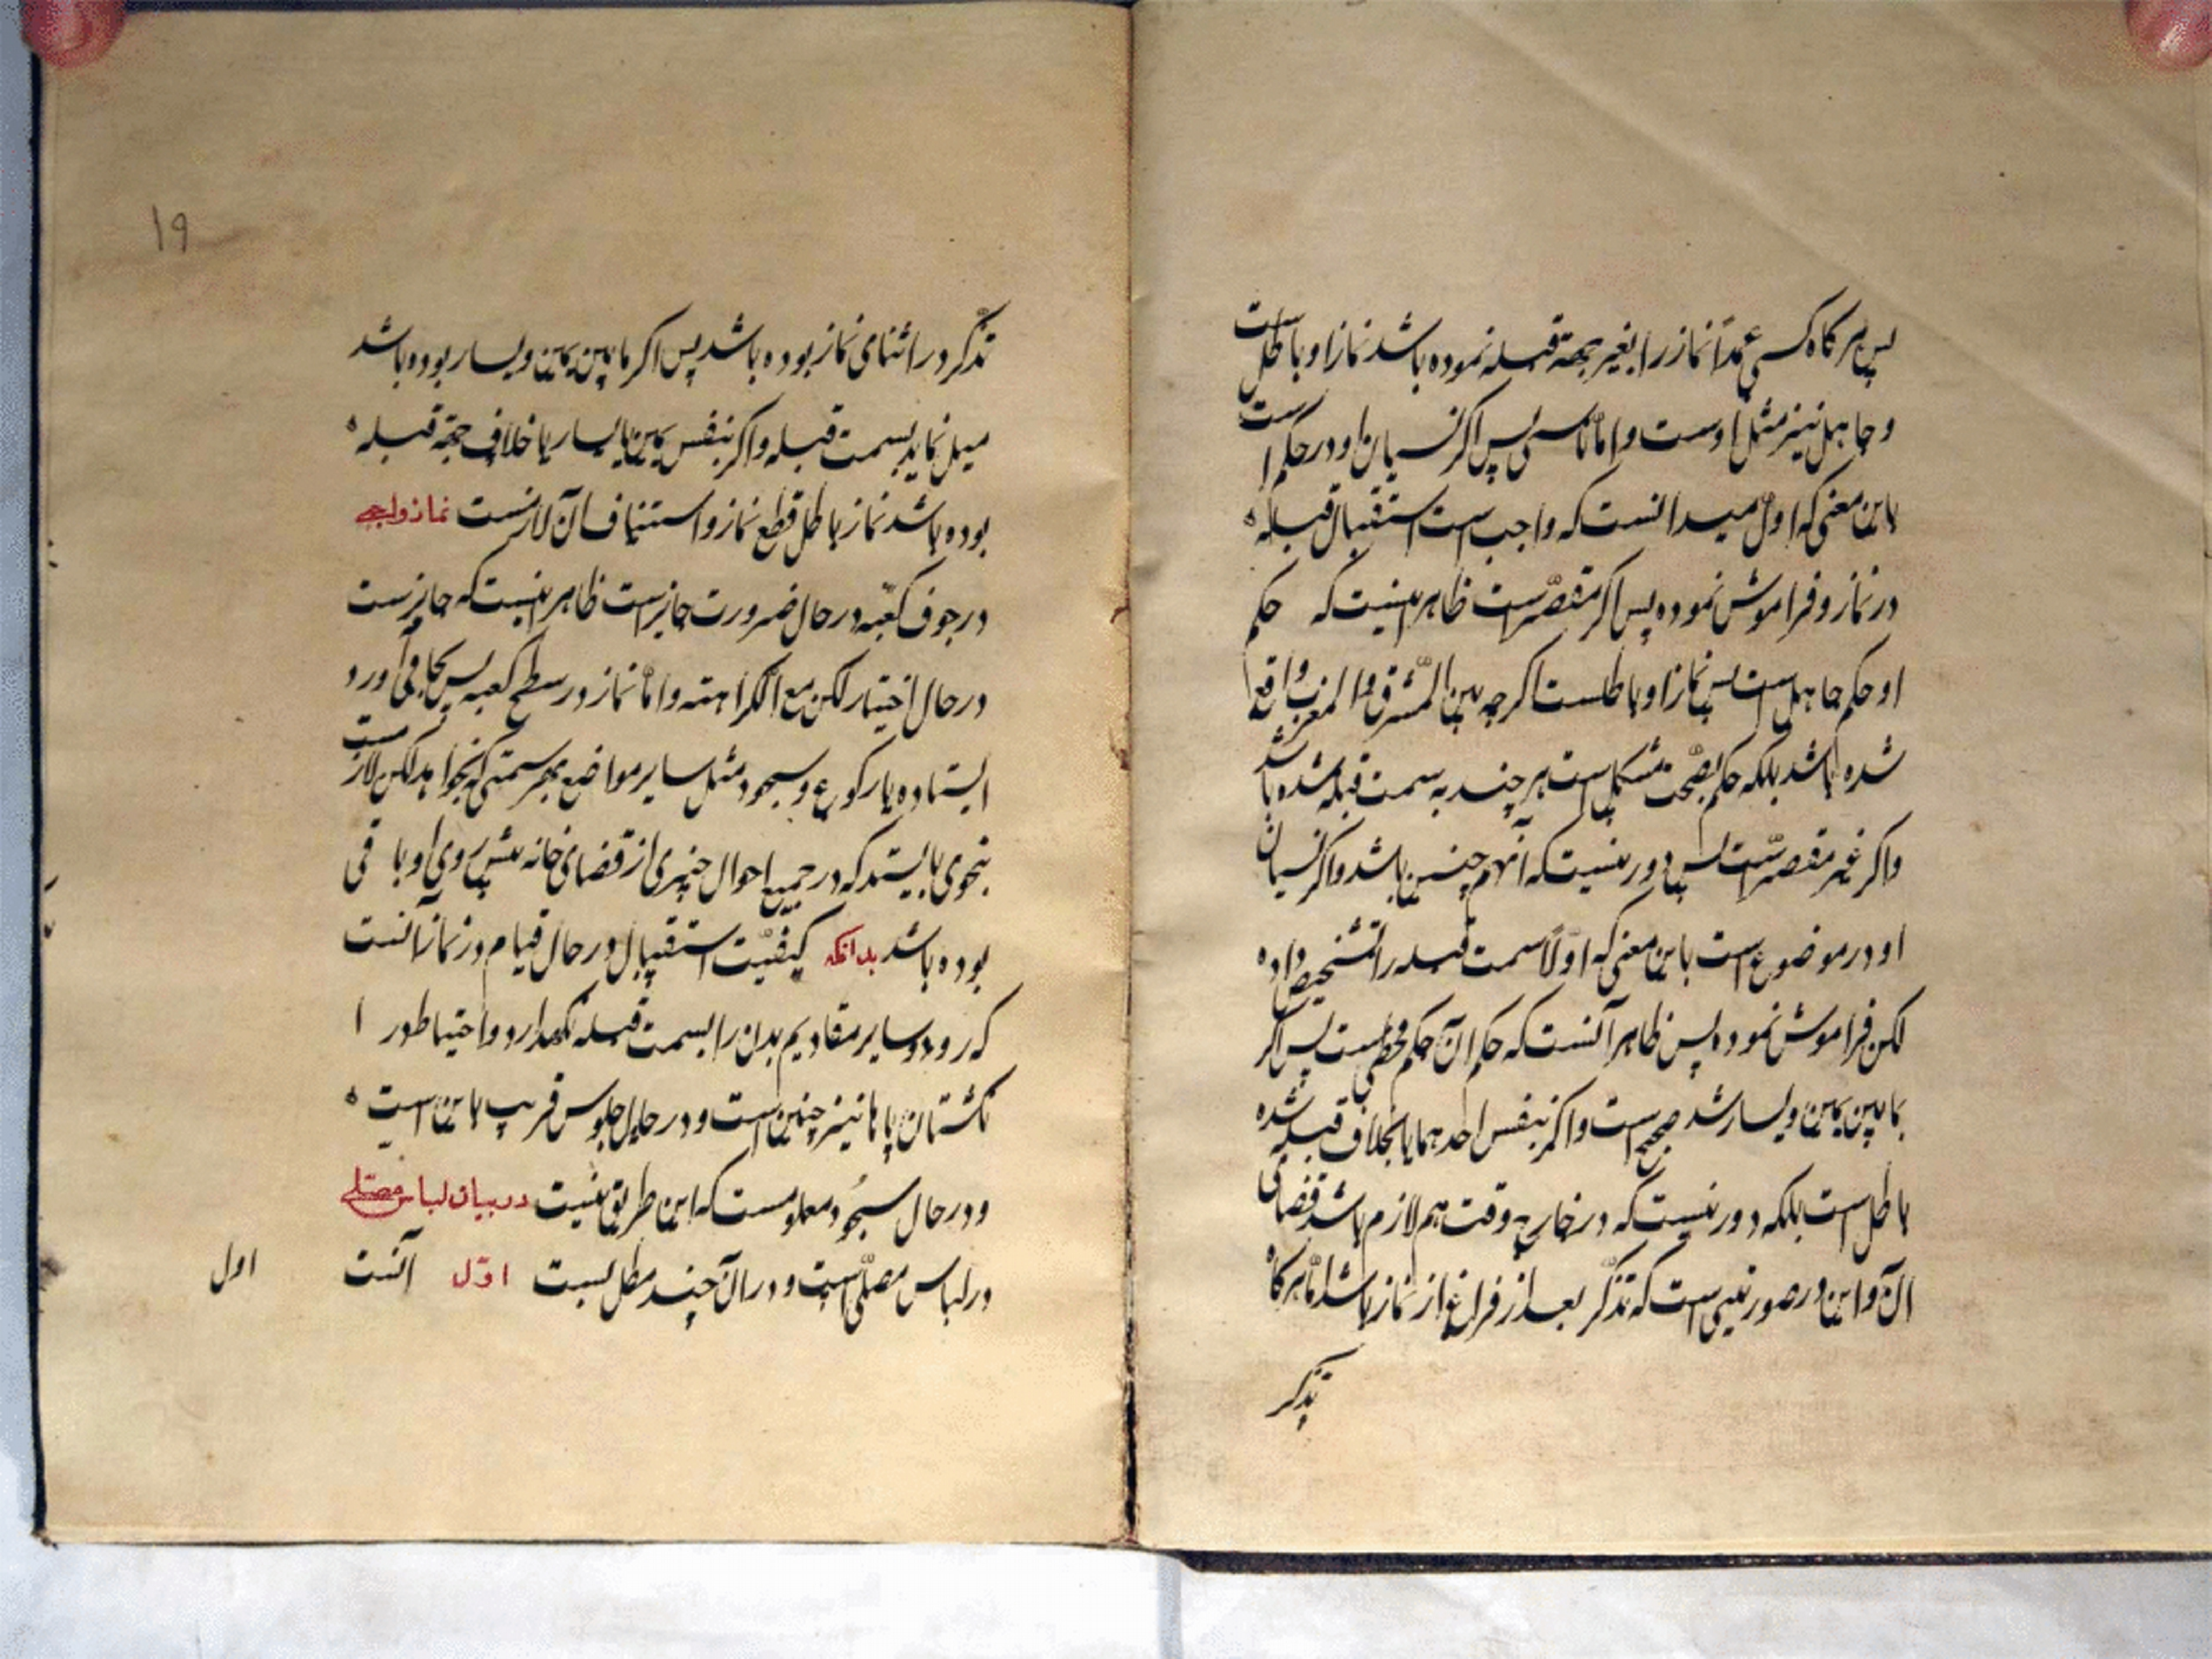 پس هر کاه کسی عمداً نماز را بغیر جهة قبله نموده باشد نماز او باطل است
و جاهل نیز مثل اوست و اما ناسی پس اکر نسیان او در حکم است
باین معنی که اول میدانست که واجب است استقبال قبله
در نماز و فراموش نموده پس اکر مقصّر است ظاهر اینست که حکم
او حکم جاهل است پس نماز او باطلست اکرچه بین المشرق و المغرب واقع
شده باشد بلکه حکم بصّحت مشکل است هر چند به سمت قبله شده باشد
و اکر غیر مقصّر است پس دور نیست که آنهم چنین باشد و اکر نسیان
او در موضوع است باین معنی که اولاً سمت قبله را تشخیص داده
لکن فراموش نموده پس ظاهر آنست که حکم ان حکم مخطی است پس اکر
مابین یمین و یسار شد صحیح است و اکر بنفس احدهما یا بخلاف قبله شده
باطل است بلکه دور نیست که در خارج وقت هم لازم باشد قضای
آن و این در صورتیی است که تذکّر بعد از فراغ از نماز باشد امّا هر کاه
تذکر
۱۹
تذکّر در اثنای نماز بوده باشد پس اکر مابین یمین و یسار بوده باشد
میل نماید بسمت قبله و اکر بنفس یمین یا یسار یا خلاف جهة قبله
بوده باشد نماز باطل قطع نماز و استیناف آن لازمست نماز واجبی
در جوف کعبه در حال ضرورت جایز است ظاهر اینست که جایز است
در حال اختیار لکن مع الکراهته و امّا نماز در سطح کعبه پس بجا می آورد
ایستاده یا رکوع و سجود مثل سایر مواضع بهر سمتی که بخواهد لکن لازمست
بنحوی بایستد که در جمیع احوال چیزی از فضای خانه پیش روی او باقی
بوده باشد بدانکه کیفیّت استقبال در حال قیام در نماز آنست
که رو و سایر مقادیم بدن را بسمت قبله نکهدارد و احتیاط در ا
نکشتان پاها نیز چنین است و در حال جلوس قریب باین است
و در حال سجود معلومست که این طریق نیست در بیان لباس مصلّی
در لباس مصلّی است و در آن چند مطلبست اوّل آنست
اول